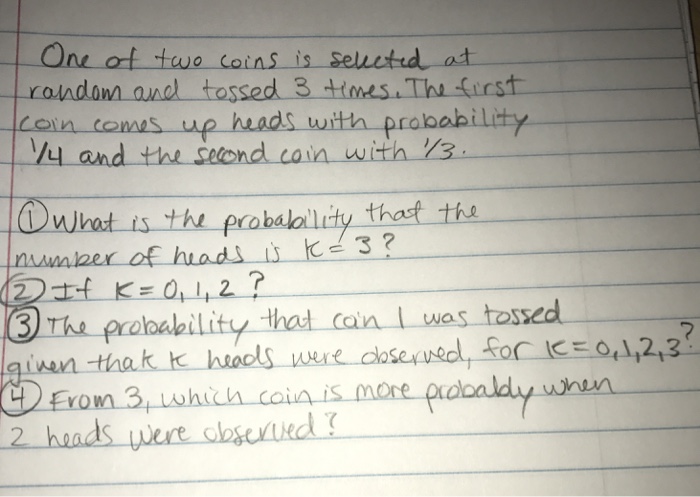 One of two coins is selected at
random and tossed 3 times. The first
coin comes up heads with probability
1/4 and the second coin with 1/3.
① What is the probability that the
number of heads is K = 3?
② If K = 0, 1, 2 ?
③ The probability that coin 1 was tossed
given thak K heads were observed, for K = 0,1,2,3?
④ From 3, which coin is more probaldy when
2 heads were observed?